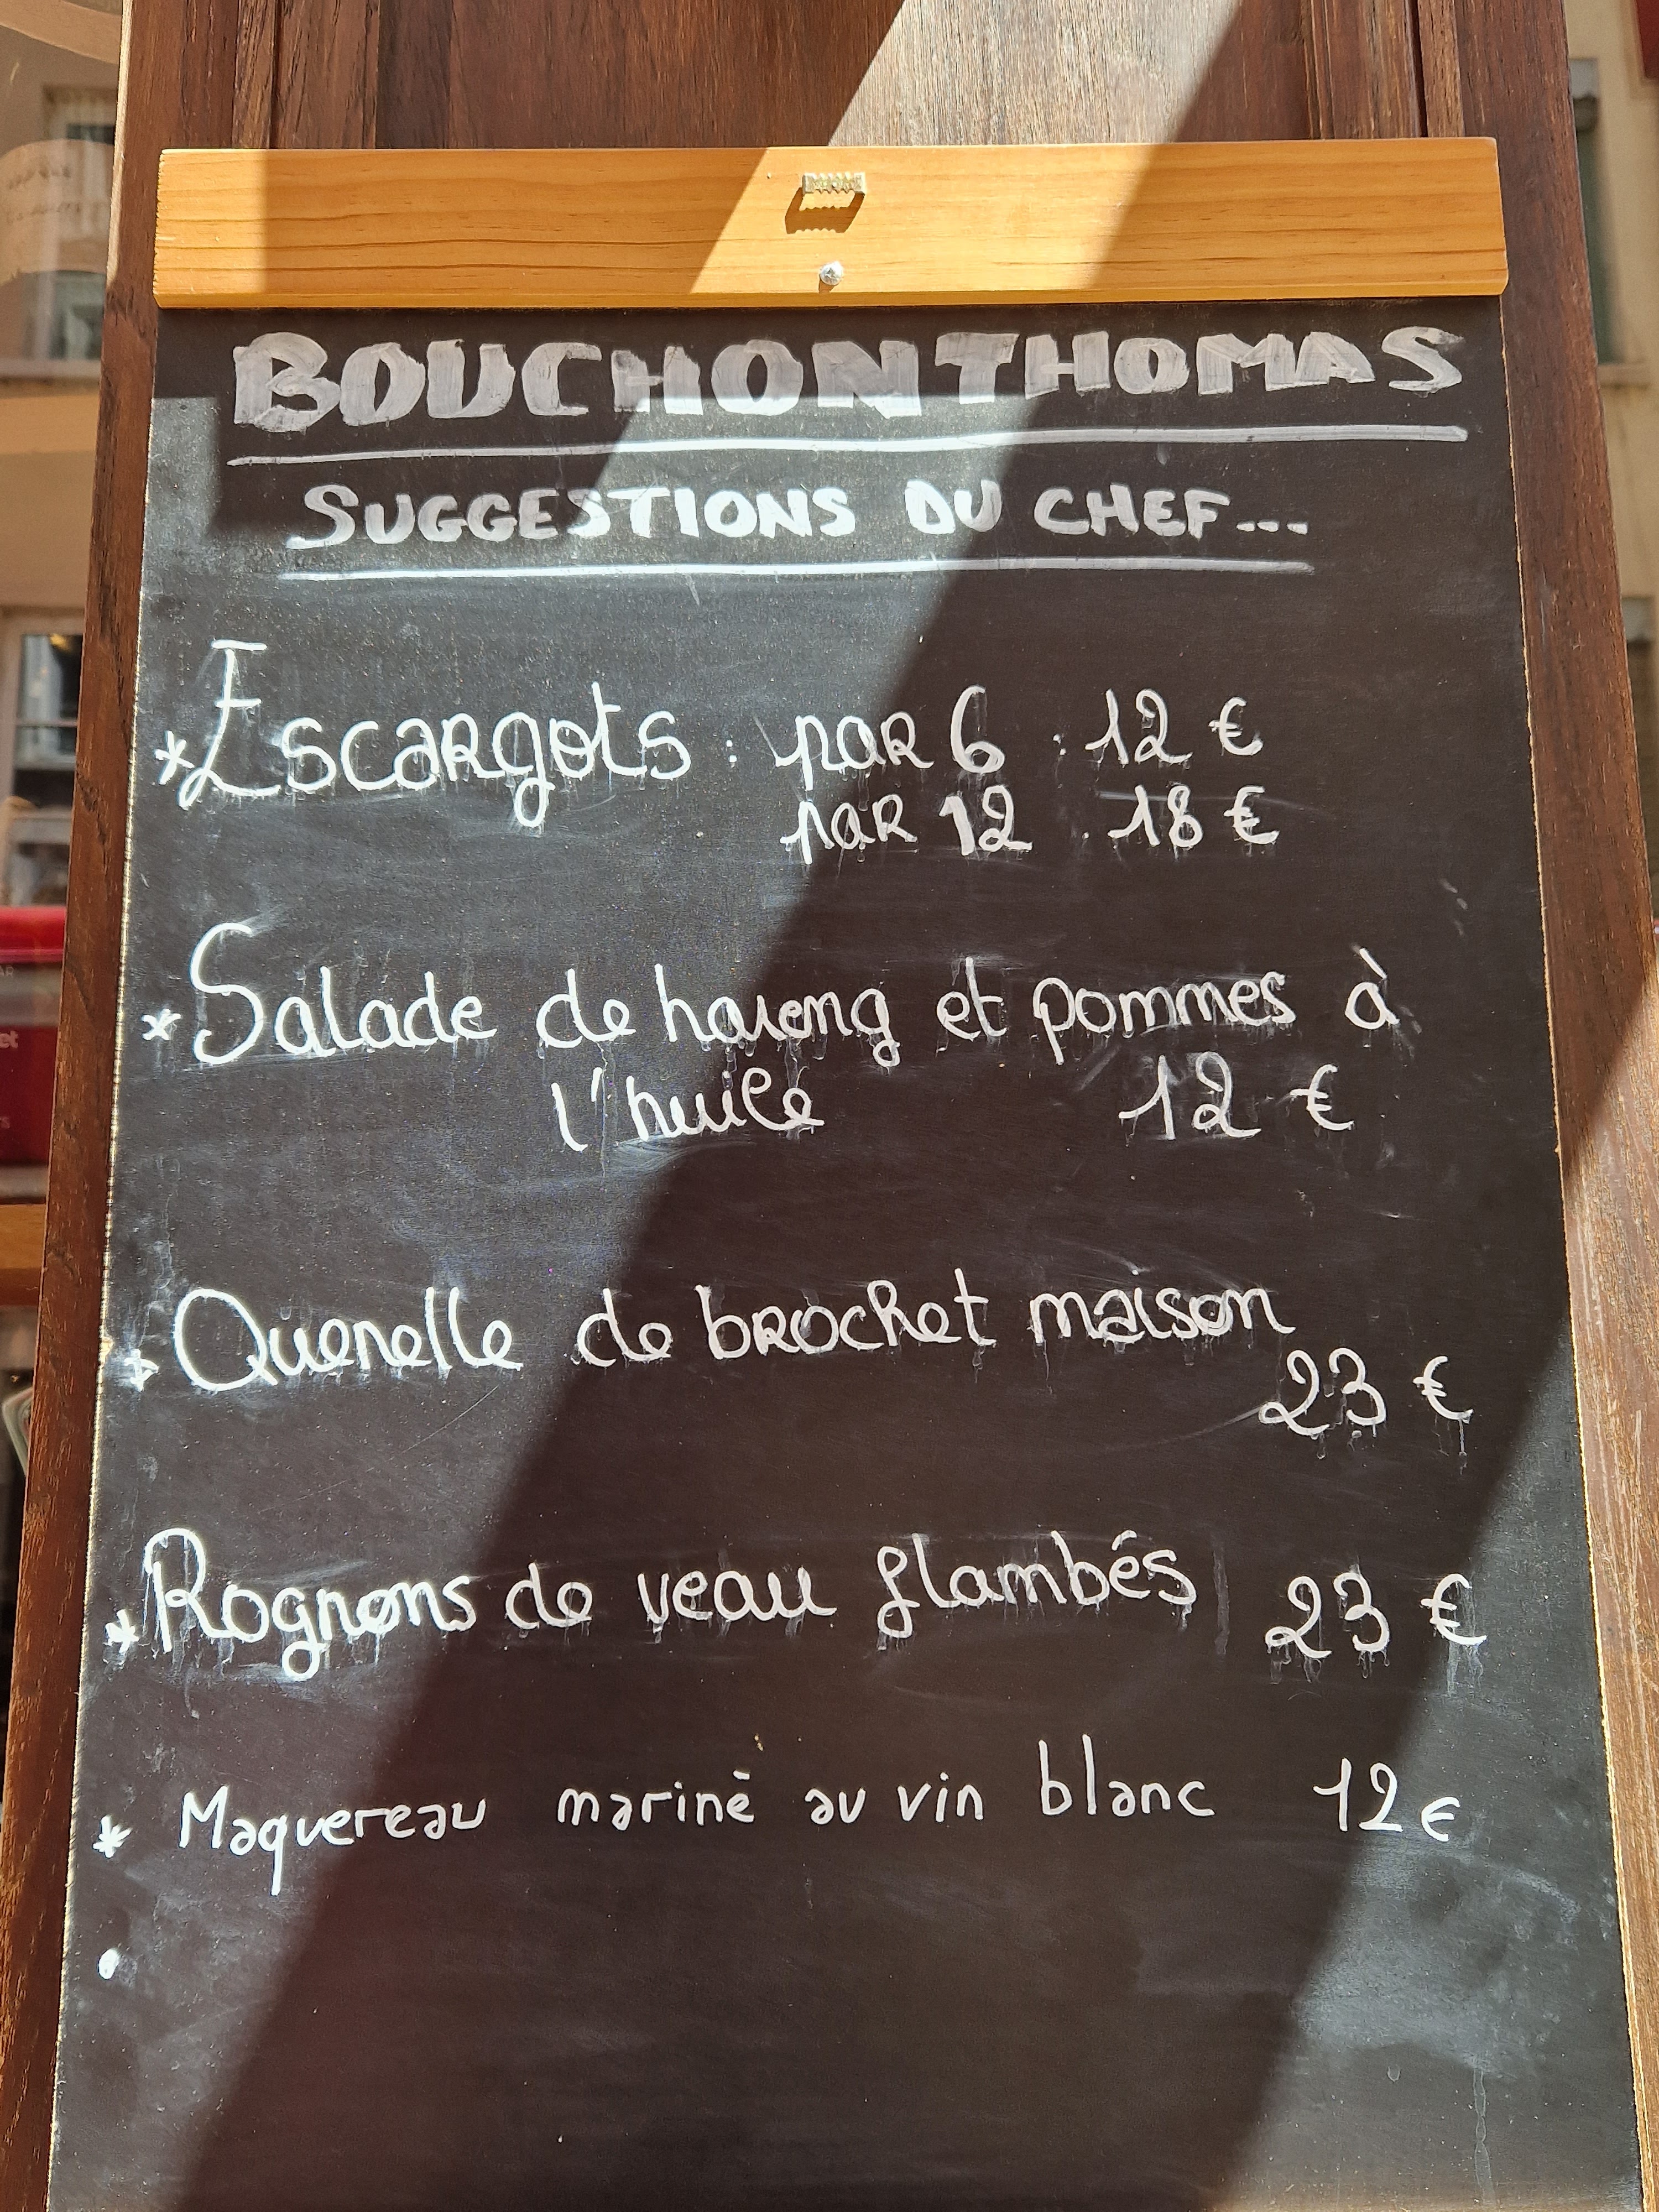 BOUCHON THOMAS
SUGGESTIONS DU CHEF...
* Escargots : par 6 : 12 €
par 12 : 18 €
* Salade de hareng et pommes à
l'huile 12 €
* Quenelle de brochet maison
23 €
* Rognons de veau flambés 23 €
* Maquereau mariné au vin blanc 12€